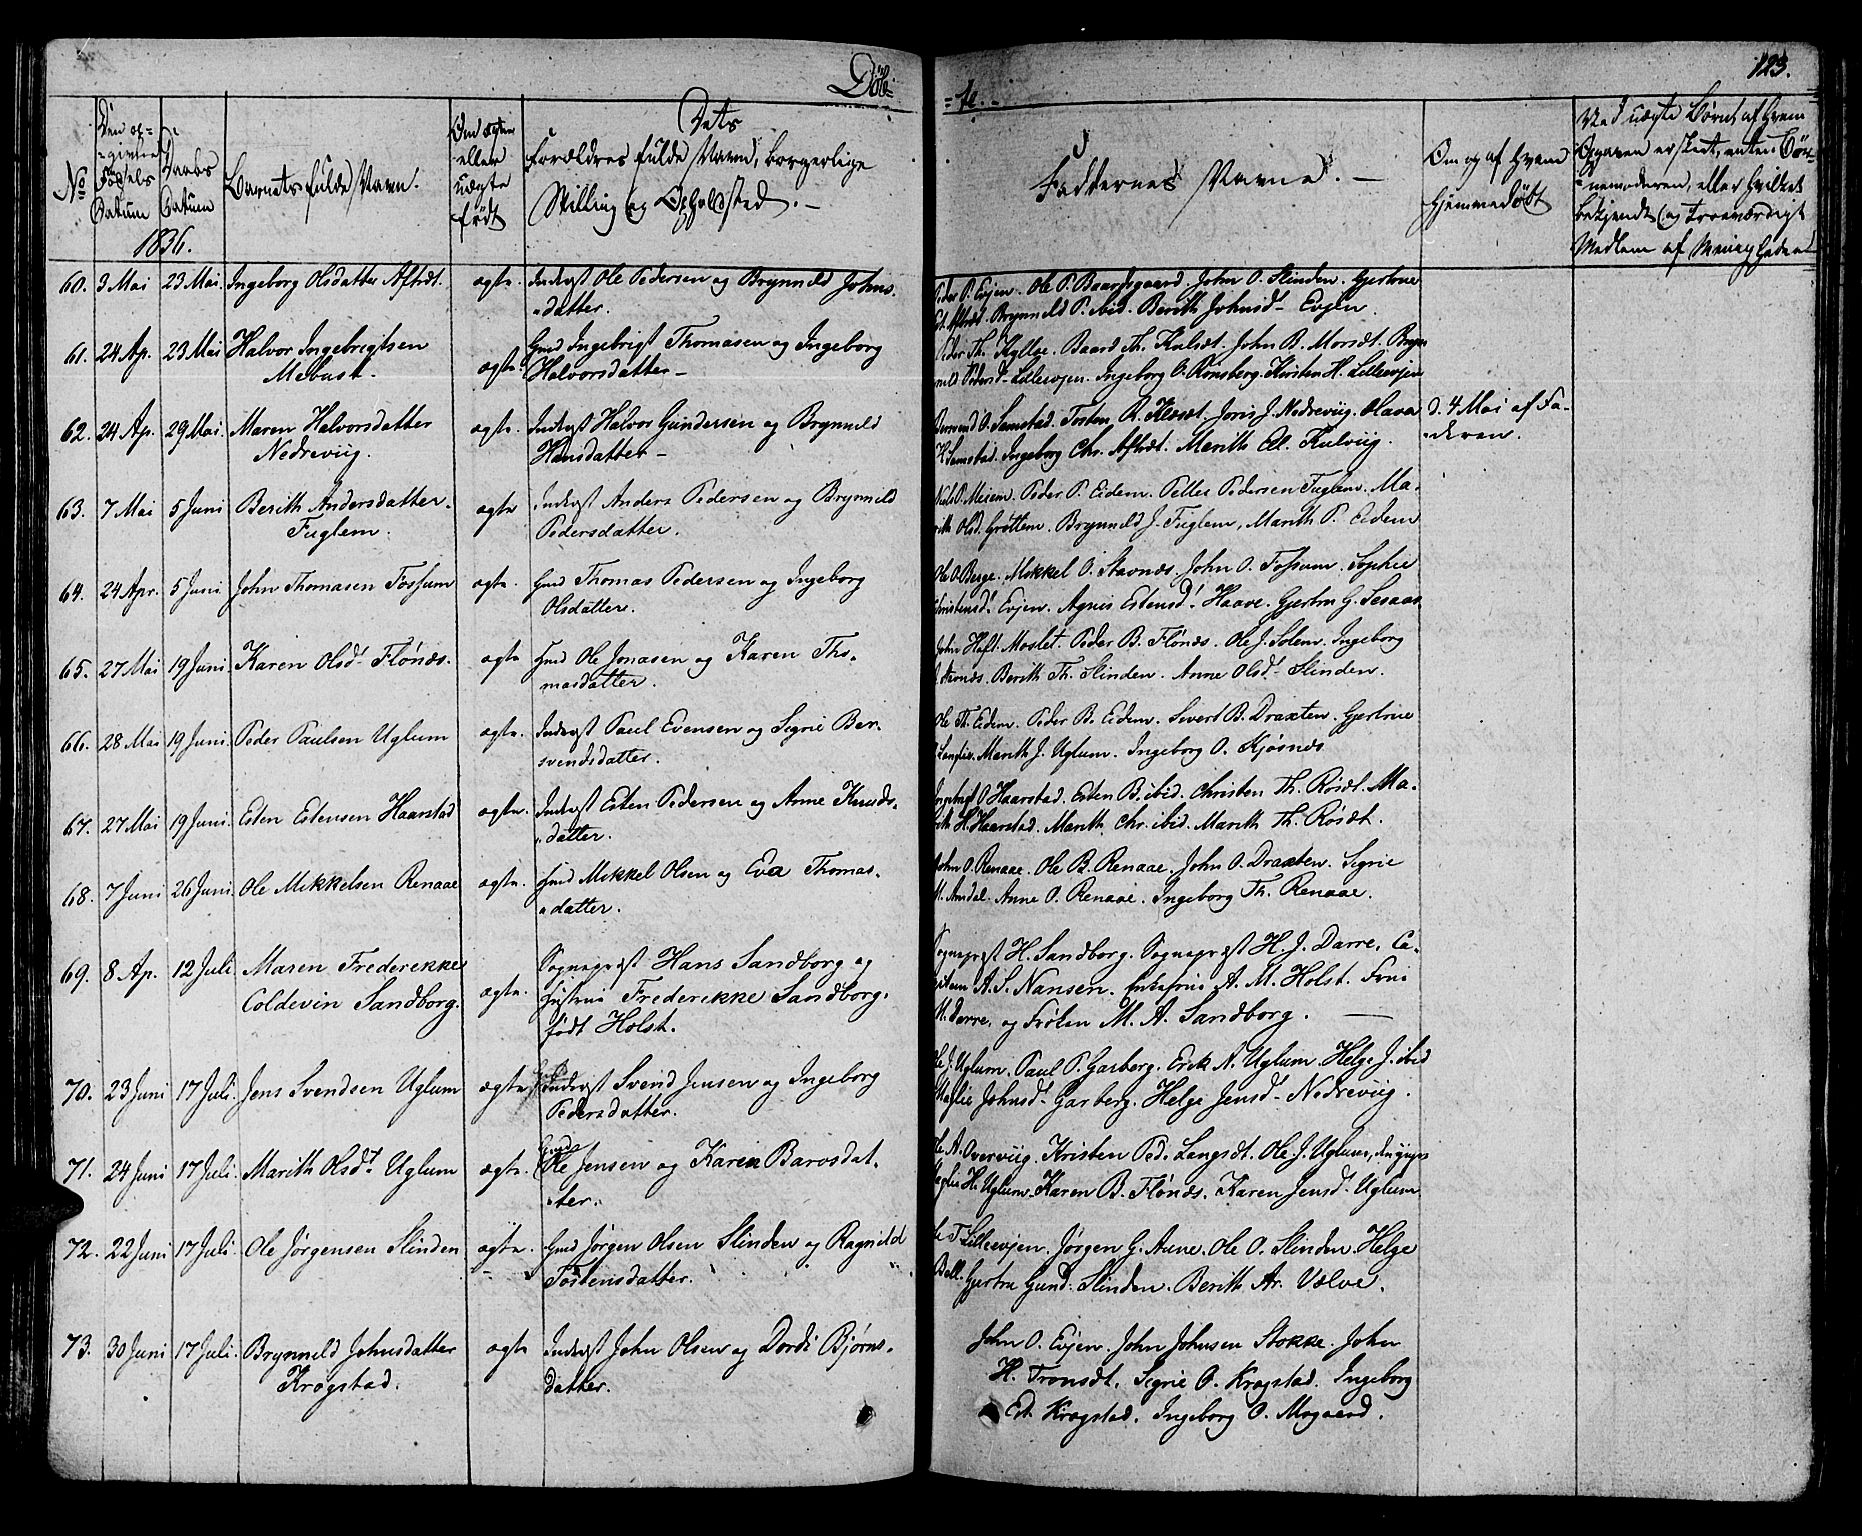 Døb-
-te.-
123.
No
Den op-
givne
Fødsels
Datum
Daabs
Datum
1836.
Barnets fulde Navn.
Om ægte
eller
uægte
født
Dets
Forældres fulde Navn, borgerlige
Stilling og Opholdsted.-
Faddernes Navne.-
Om og af Hvem
hjemmedøbt
Ved uægte Børn af Hvem
Opgaven er skeet, enten Bør-
nemoderen, eller hvilket
bekjendt og troværdigt
Medlem af Menigheden
60. 3 Mai 23 Mai Ingeborg Olsdatter Aftret. ægte. Inderst Ole Pedersen og Brynnild Johns-
datter.
Peder P. Evjen. Ole P. Baardsgaard. John O. Slinden. Gjertrue
Brynnild P. ibid. Berith Johnsd- Evjen.
61. 24 Ap. 23 Mai Halvor Ingebrigtsen
Mebust.
ægte. Gmd Ingebrigt Thomasen og Ingeborg
Halvorsdatter-
Peder Th. Kylloe. Baard Th. Kulset. John B. Morset. Bryn-
nild Pedersd- Lilleevjen. Ingeborg O. Rønsberg. Kirsten H. Lilleevjen
62. 24 Ap. 29 Mai Maren Halvorsdatter
Nedreviig.
ægte. Inderst Halvor Gundersen og Brynnild
Hansdatter-
O. Samstad. Tosten R. Joris J. Nedreviig. Olava
H. Samstad. Ingeborg Chr. Marith Ed. Kulviig.
d. 4 Mai af Fa-
deren.
63. 7 Mai 5 Juni Berith Andersdatter
Fuglem.
ægte Inderst Anders Pedersen og Brynnild
Pedersdatter.
Niels P. Mesem. Peder P. Eidem. Pelle Pedersen Fuglem. Ma-
rith Olsd. Grøttem. Brynnild J. Fuglem, Marith P. Eidem
64. 24 Apr. 5 Juni John Thomasen Fossum ægte. Gmd Thomas Pedersen og Ingeborg
Olsdatter.
Ole O. Berge. Mikkel O. Stavnæs. John O. Fossum. Sophie
Christensd. Evjen. Agnis Estensd. Haave. Gjertru G. Sesaas
65. 27 Mai 19 Juni Karen Olsd- Flønæs. ægte Gmd Ole Jonasen og Karen Tho-
masdatter.
John Hoft. Moslet. Peder B. Flønæs. Ole J. Solem. Ingeborg
Berith Th. Slinden. Anne Olsd- Slinden.
66. 28 Mai 19 Juni Peder Paulsen Uglum ægte. Inderst Paul Evensen og Sigrie Ber-
svendsdatter.
Ole Th. Eidem. Peder B. Eidem. Sivert B. Draxten. Gjertrue
Marith J. Uglum. Ingeborg O. Kjøsnæs
67. 27 Mai 19 Juni. Esten Estensen Haarstad ægte. Inderst Esten Pedersen og Anne Knuds-
datter.
Ingebrigt O Haarstad. Esten B. ibid. Christen Th. Røset. Ma-
rith H. Haarstad. Marith Chr. ibid. Marith Th. Røset.
68. 7 Juni 26 Juni. Ole Mikkelsen Renaae ægte. Gmd Mikkel Olsen og Eva Thomas-
datter.
John O. Renaae. Ole B. Renaae. John O. Draxten. Sigrie
M. Amdal. Anne O. Renaae. Ingeborg Th. Renaae.
69. 8 Ap. 12 Juli Maren Frederekke
Coldevin Sandborg.
ægte. Sognepræst Hans Sandborg og
Hustrue Frederekke Sandborg,
født Holst.
Sognepræst H. Sandborg. Sognepræst H. J. Darre, Ca-
pitain A. S. Nansen. Enkefrue A. M. Holst. Frue
M. Darre, og Frøken M. A. Sandborg.
70. 23 Juni 17 Juli. Jens Svendsen Uglum ægte Gmd Inderst Svend Jensen og Ingeborg
Pedersdatter.
Ole J. Uglum. Paul P. Garberg. Erik A. Uglum. Helge J. ibid
Johnsd- Garberg. Helge Jensd- Nedreviig.
71. 24 Juni 17 Juli. Marith Olsd. Uglum ægte. Gmd
Ole Jensen og Karen Barosdat-
ter.
Ole A. Overviig. Kristen Ped. Langset. Ole J. Uglum, den yngre
H. Uglum. Karen B. Flønæs. Karen Jensd. Uglum
72. 22 Juni 17 Juli. Ole Jørgensen Slinden ægte. Gmd Jørgen Olsen Slinden og Ragnild
Tostensdatter.
Ole T. Lilleevjen. Jørgen G. Aune. Ole O. Slinden. Helge
Gjertru Gund. Slinden. Berith Ar. Vælve.
73. 30 Juni 17 Juli. Brynnild Johnsdatter
Krogstad.
ægte Inderst John Olsen og Dordi Bjørns-
datter.
John O. Evjen. John Johnsen Stokke. John
H. Tronset. Sigrie O. Krogstad. Ingeborg
Ed. Krogstad. Ingeborg O. Mogaard.